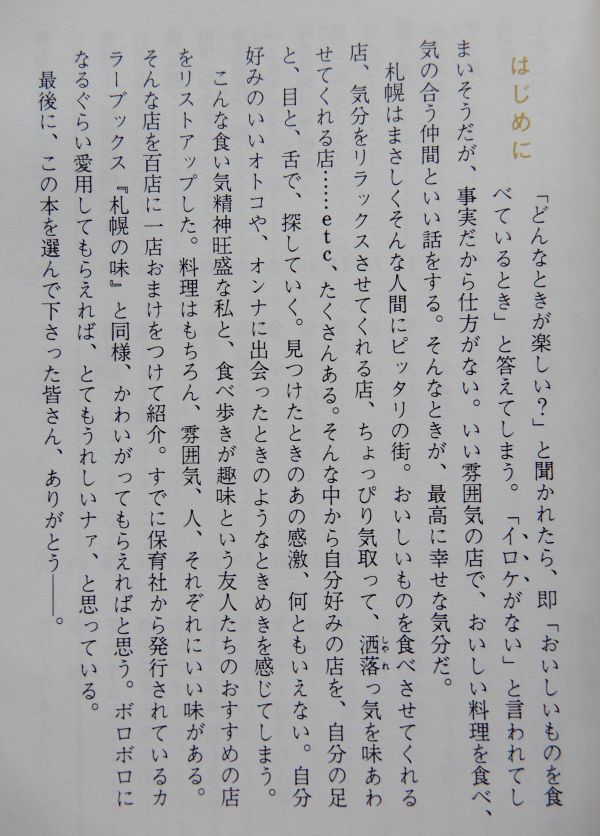 はじめに
「どんなときが楽しい？」と聞かれたら、即「おいしいものを食
べているとき」と答えてしまう。「イロケがない」と言われてし
まいそうだが、事実だから仕方がない。いい雰囲気の店で、おいしい料理を食べ、
気の合う仲間といい話をする。そんなときが、最高に幸せな気分だ。
札幌はまさしくそんな人間にピッタリの街。おいしいものを食べさせてくれる
店、気分をリラックスさせてくれる店、ちょっぴり気取って、洒落っ気を味あわ
せてくれる店……etc、たくさんある。そんな中から自分好みの店を、自分の足
と、目と、舌で、探していく。見つけたときのあの感激、何ともいえない。自分
好みのいいオトコや、オンナに出会ったときのようなときめきを感じてしまう。
こんな食い気精神旺盛な私と、食べ歩きが趣味という友人たちのおすすめの店
をリストアップした。料理はもちろん、雰囲気、人、それぞれにいい味がある。
そんな店を百店に一店おまけをつけて紹介。すでに保育社から発行されているカ
ラーブックス『札幌の味』と同様、かわいがってもらえればと思う。ボロボロに
なるぐらい愛用してもらえれば、とてもうれしいナァ、と思っている。
最後に、この本を選んで下さった皆さん、ありがとう――。